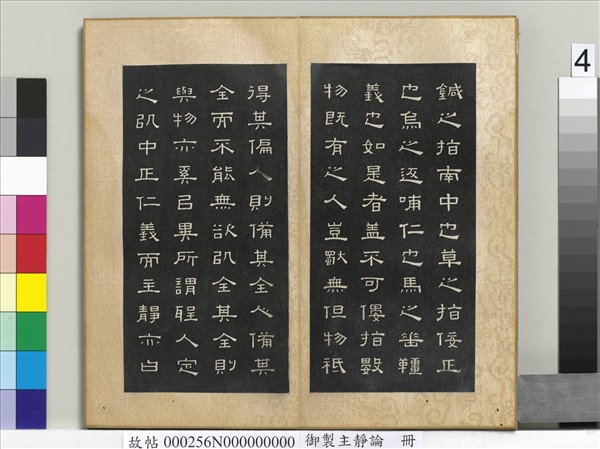 鍼之指南中也草之指佞正
也烏之返哺仁也馬之垂韁
義也如是者蓋不可僂指數
物既有之人豈獨無但物祇
得其偏人則備其全人備其
全而不能無欲以全其全則
與物亦奚以異所謂聖人定
之以中正仁義而主靜亦白
4
故帖 000256N000000000 御製主靜論 冊